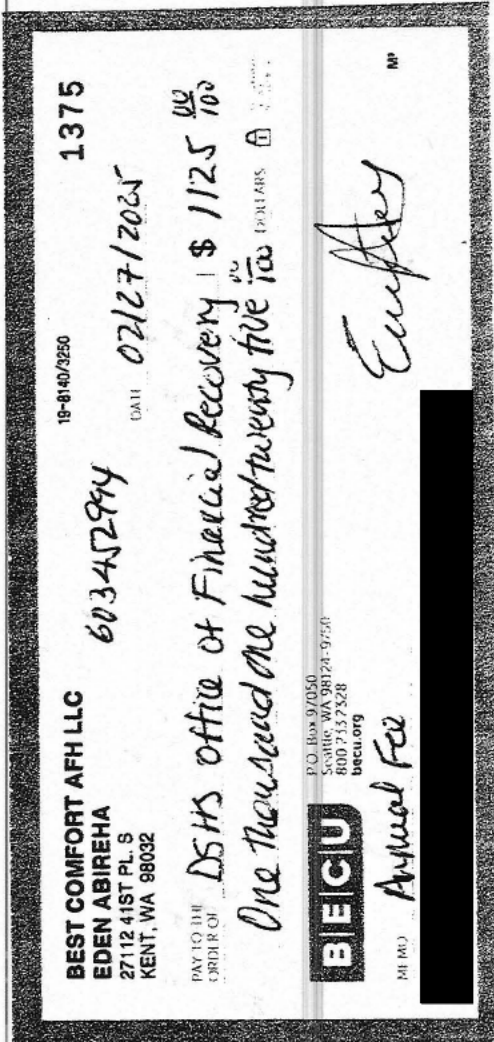 BEST COMFORT AFH LLC
EDEN ABIREHA
27112 41ST PL. S
KENT, WA 98032
603452994
19-8140/3250
1375
DATE 02/27/2025
PAY TO THE ORDER OF DSHS Office of Financial Recovery $ 1125 00/100
One thousand one hundred twenty five 00/100 DOLLARS
BECU
P.O. Box 97050
Seattle, WA 98124-9750
800 233 2328
becu.org
MEMO Annual Fee
MP